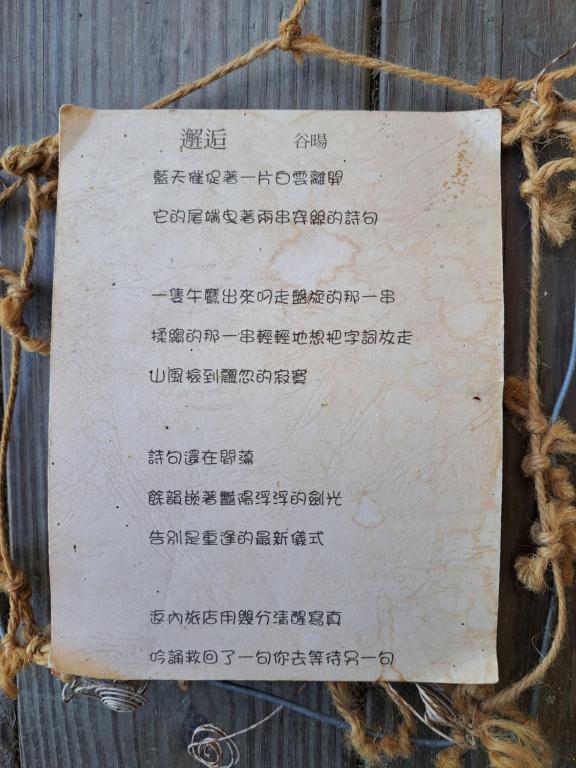 邂逅 谷暘
藍天催促著一片白雲離開
它的尾端曳著兩串穿絲的詩句
一隻午鷹出來叼走盤旋的那一串
揉縐的那一串輕輕地想把字詞放走
山風撿到飄忽的寂寞
詩句還在閒蕩
餘韻嵌著豔陽浮浮的劍光
告別是重逢的最新儀式
返內旅店用幾分清醒寫真
吟誦救回了一句你去等待另一句